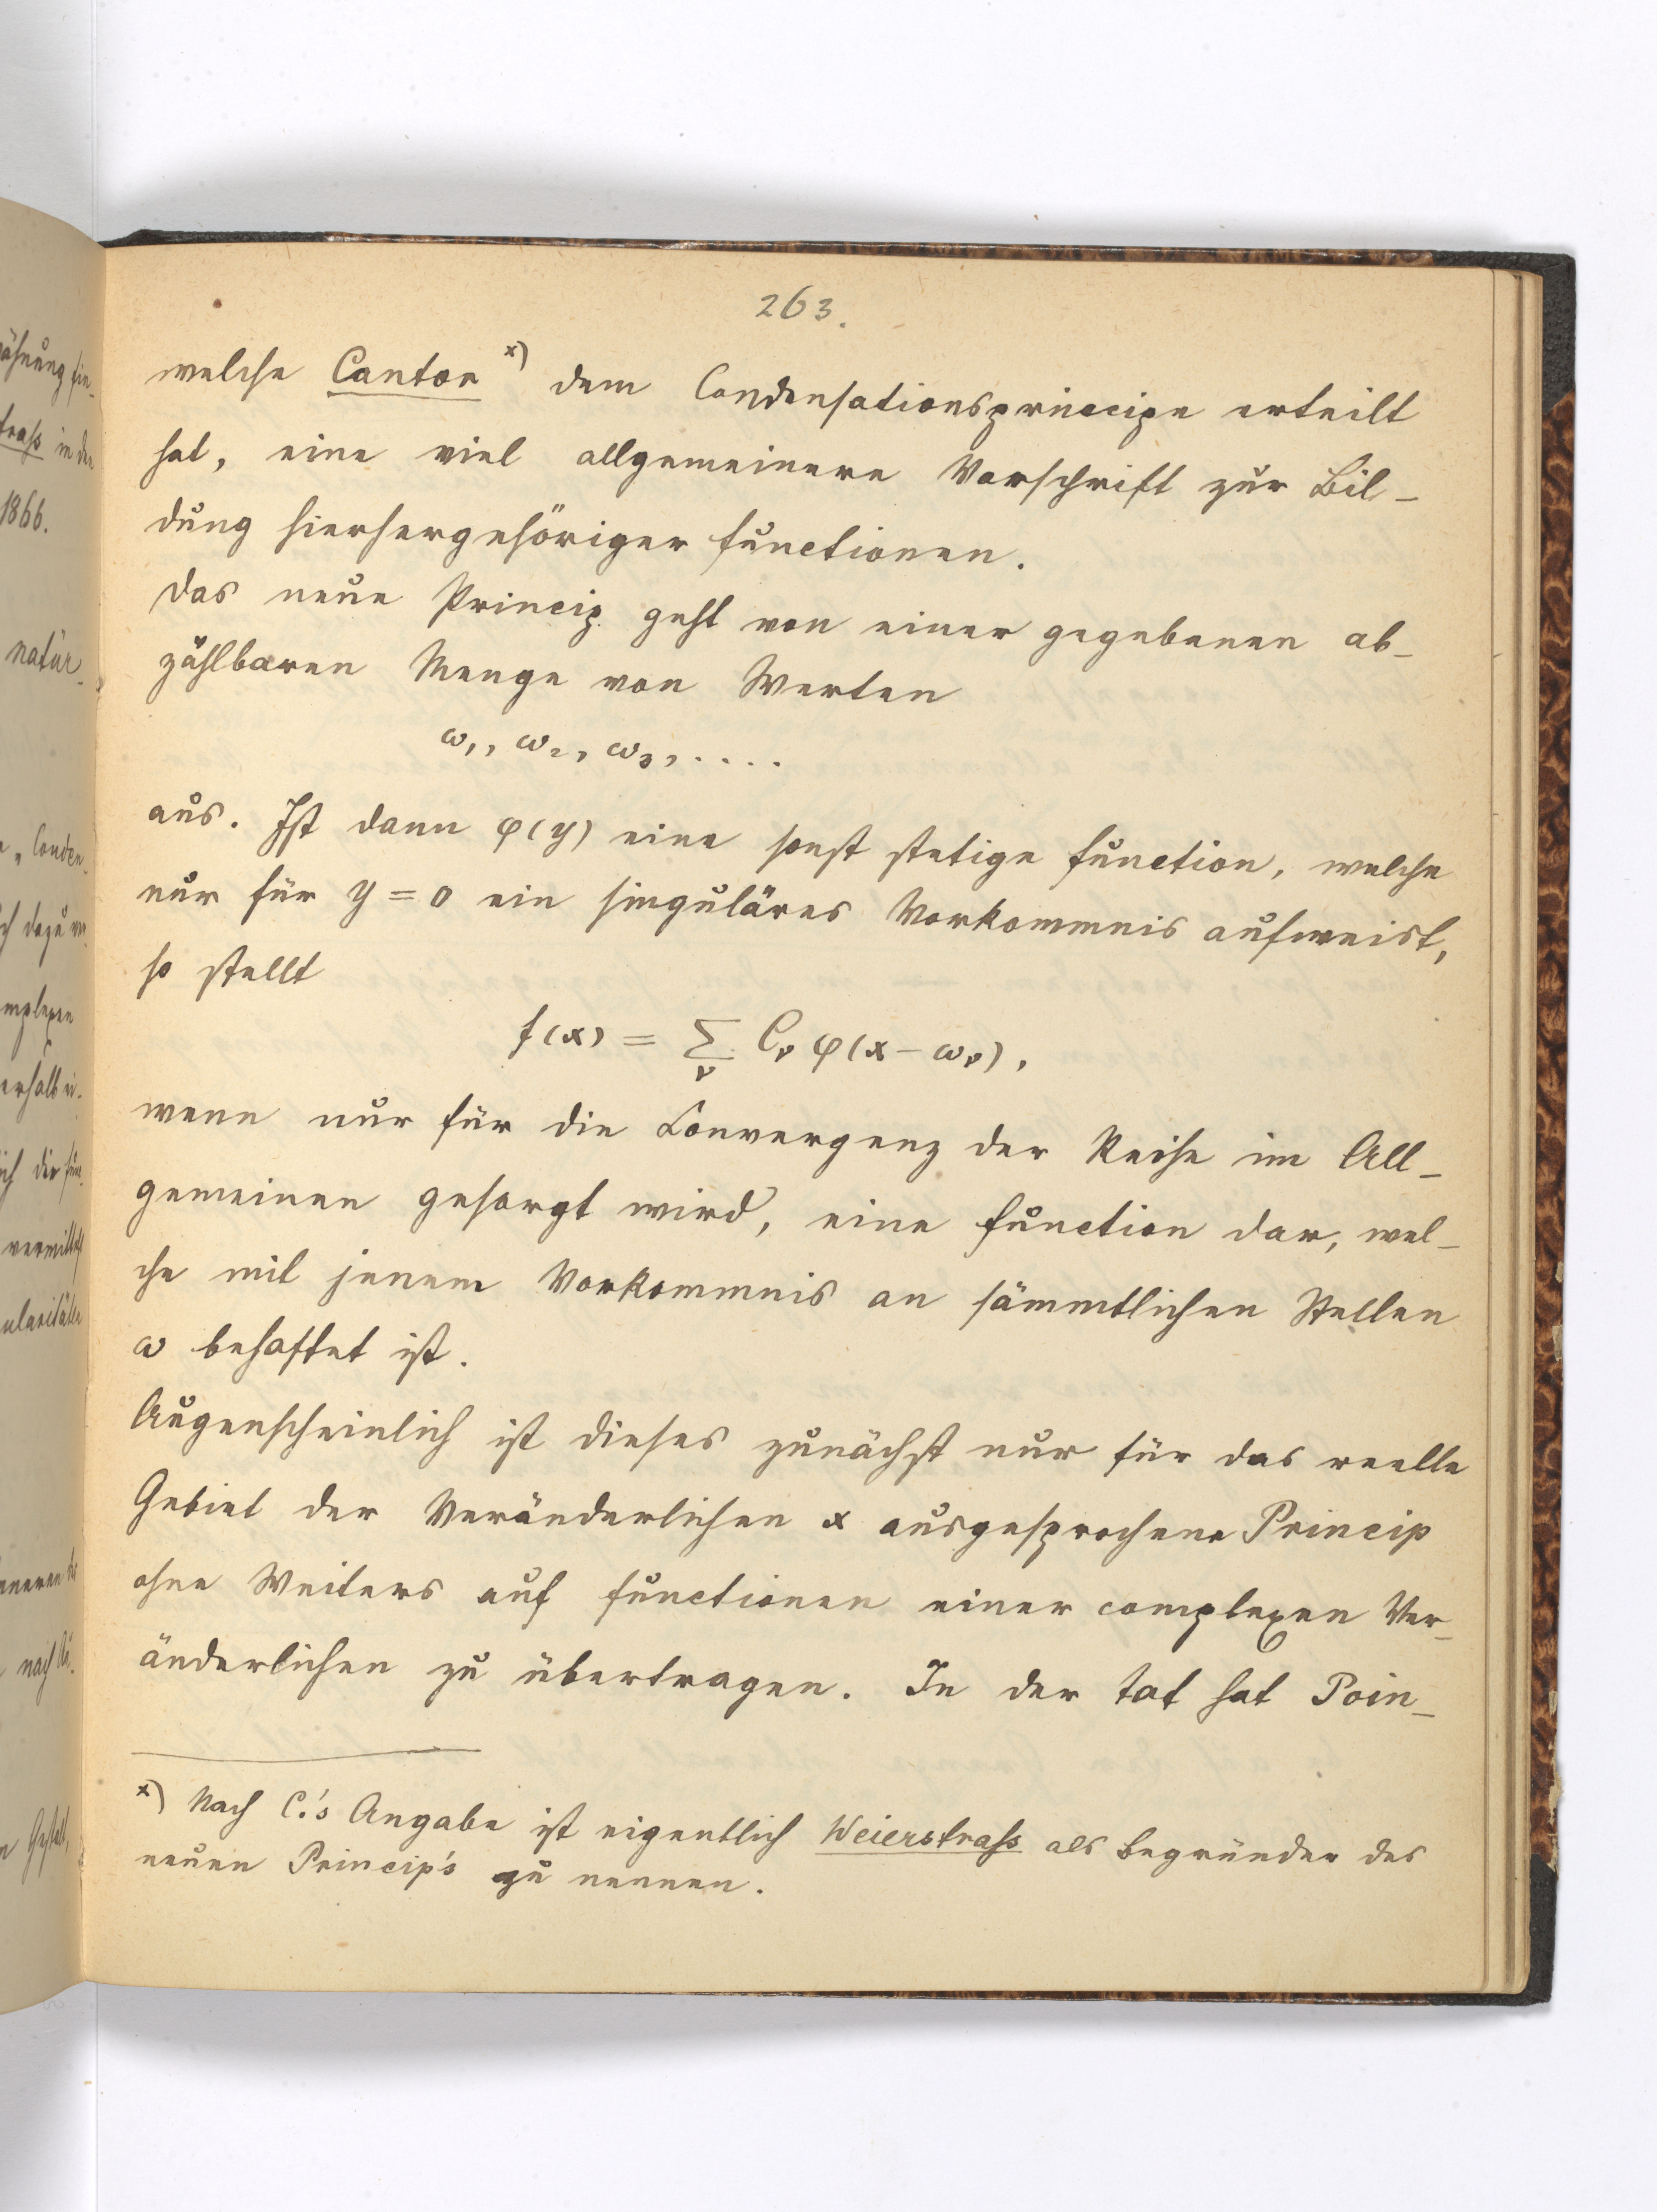 263.
welche Cantor x) dem Condensationsprincipe erteilt
hat, eine viel allgemeinere Vorschrift zur Bil-
dung hierhergehöriger Functionen.
Das neue Princip geht von einer gegebenen ab-
zählbaren Menge von Werten
ω₁, ω₂, ω₃, ....
aus. Ist dann φ(y) eine sonst stetige Function, welche
nur für y = 0 ein singuläres Vorkommnis aufweist,
so stellt
f(x) = Σ_ν C_ν φ(x - ω_ν),
wenn nur für die Convergenz der Reihe im All-
gemeinen gesorgt wird, eine Function dar, wel-
che mit jenem Vorkommnis an sämmtlichen Stellen
ω behaftet ist.
Augenscheinlich ist dieses zunächst nur für das reelle
Gebiet der Veränderlichen x ausgesprochene Princip
ohne Weiters auf Functionen einer complexen Ver-
änderlichen zu übertragen. In der Tat hat Poin-
x) Nach C.'s Angabe ist eigentlich Weierstraß als Begründer des
neuen Princip's zu nennen.